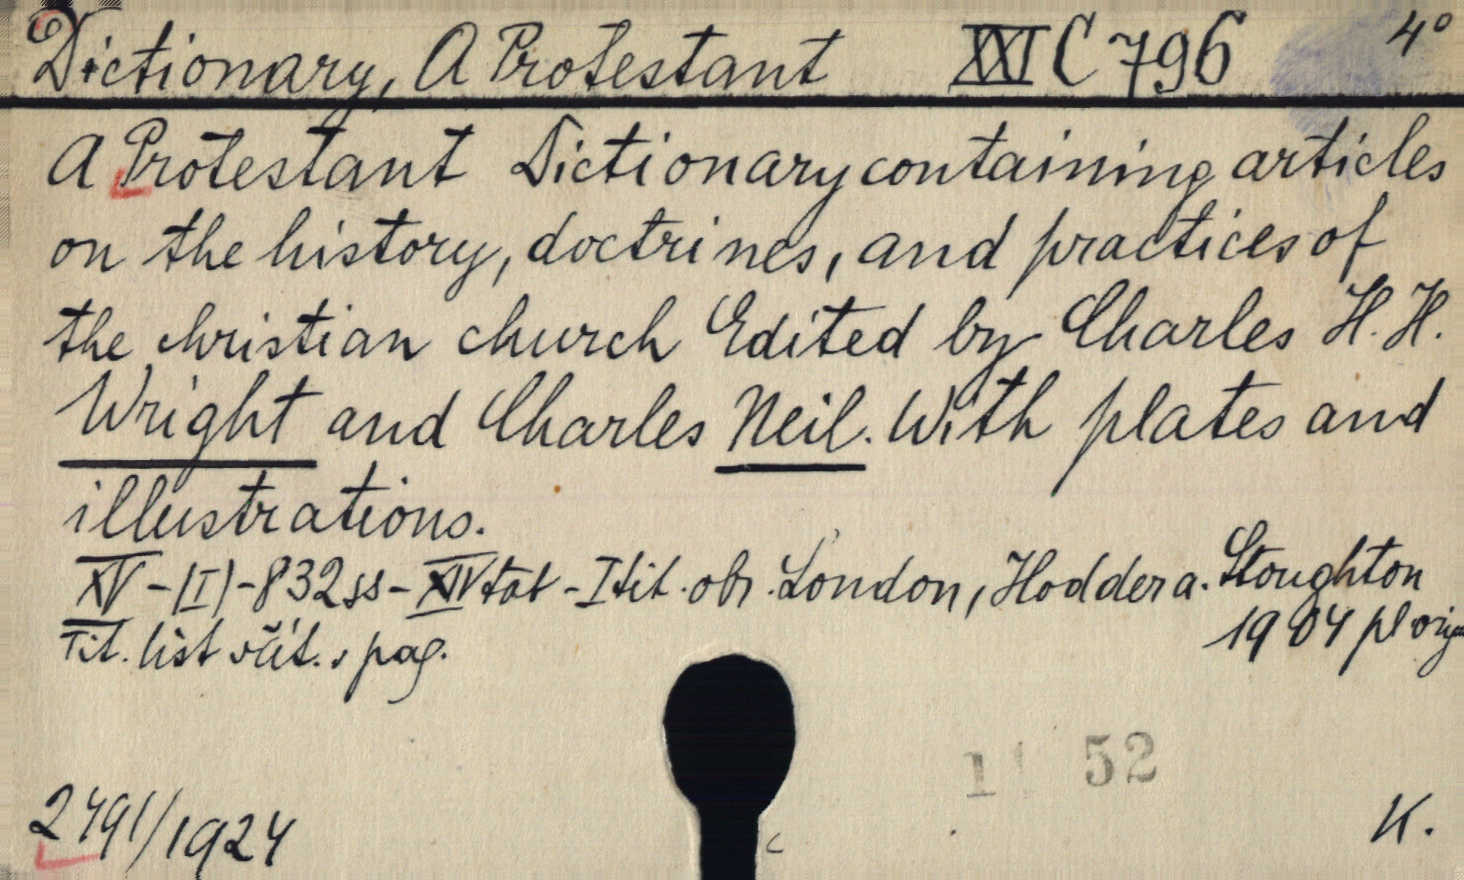 Dictionary, A Protestant XXI C 796 4°
A Protestant Dictionary containing articles
on the history, doctrines, and practices of
the christian church Edited by Charles H. H.
Wright and Charles Neil. With plates and
illustrations.
XV-(I)-832 ss-XIV tab-I tit. obr. London, Hodder a. Stoughton
1904 pl orig
Tit. list včít. v pag.
52
2491/1924
K.